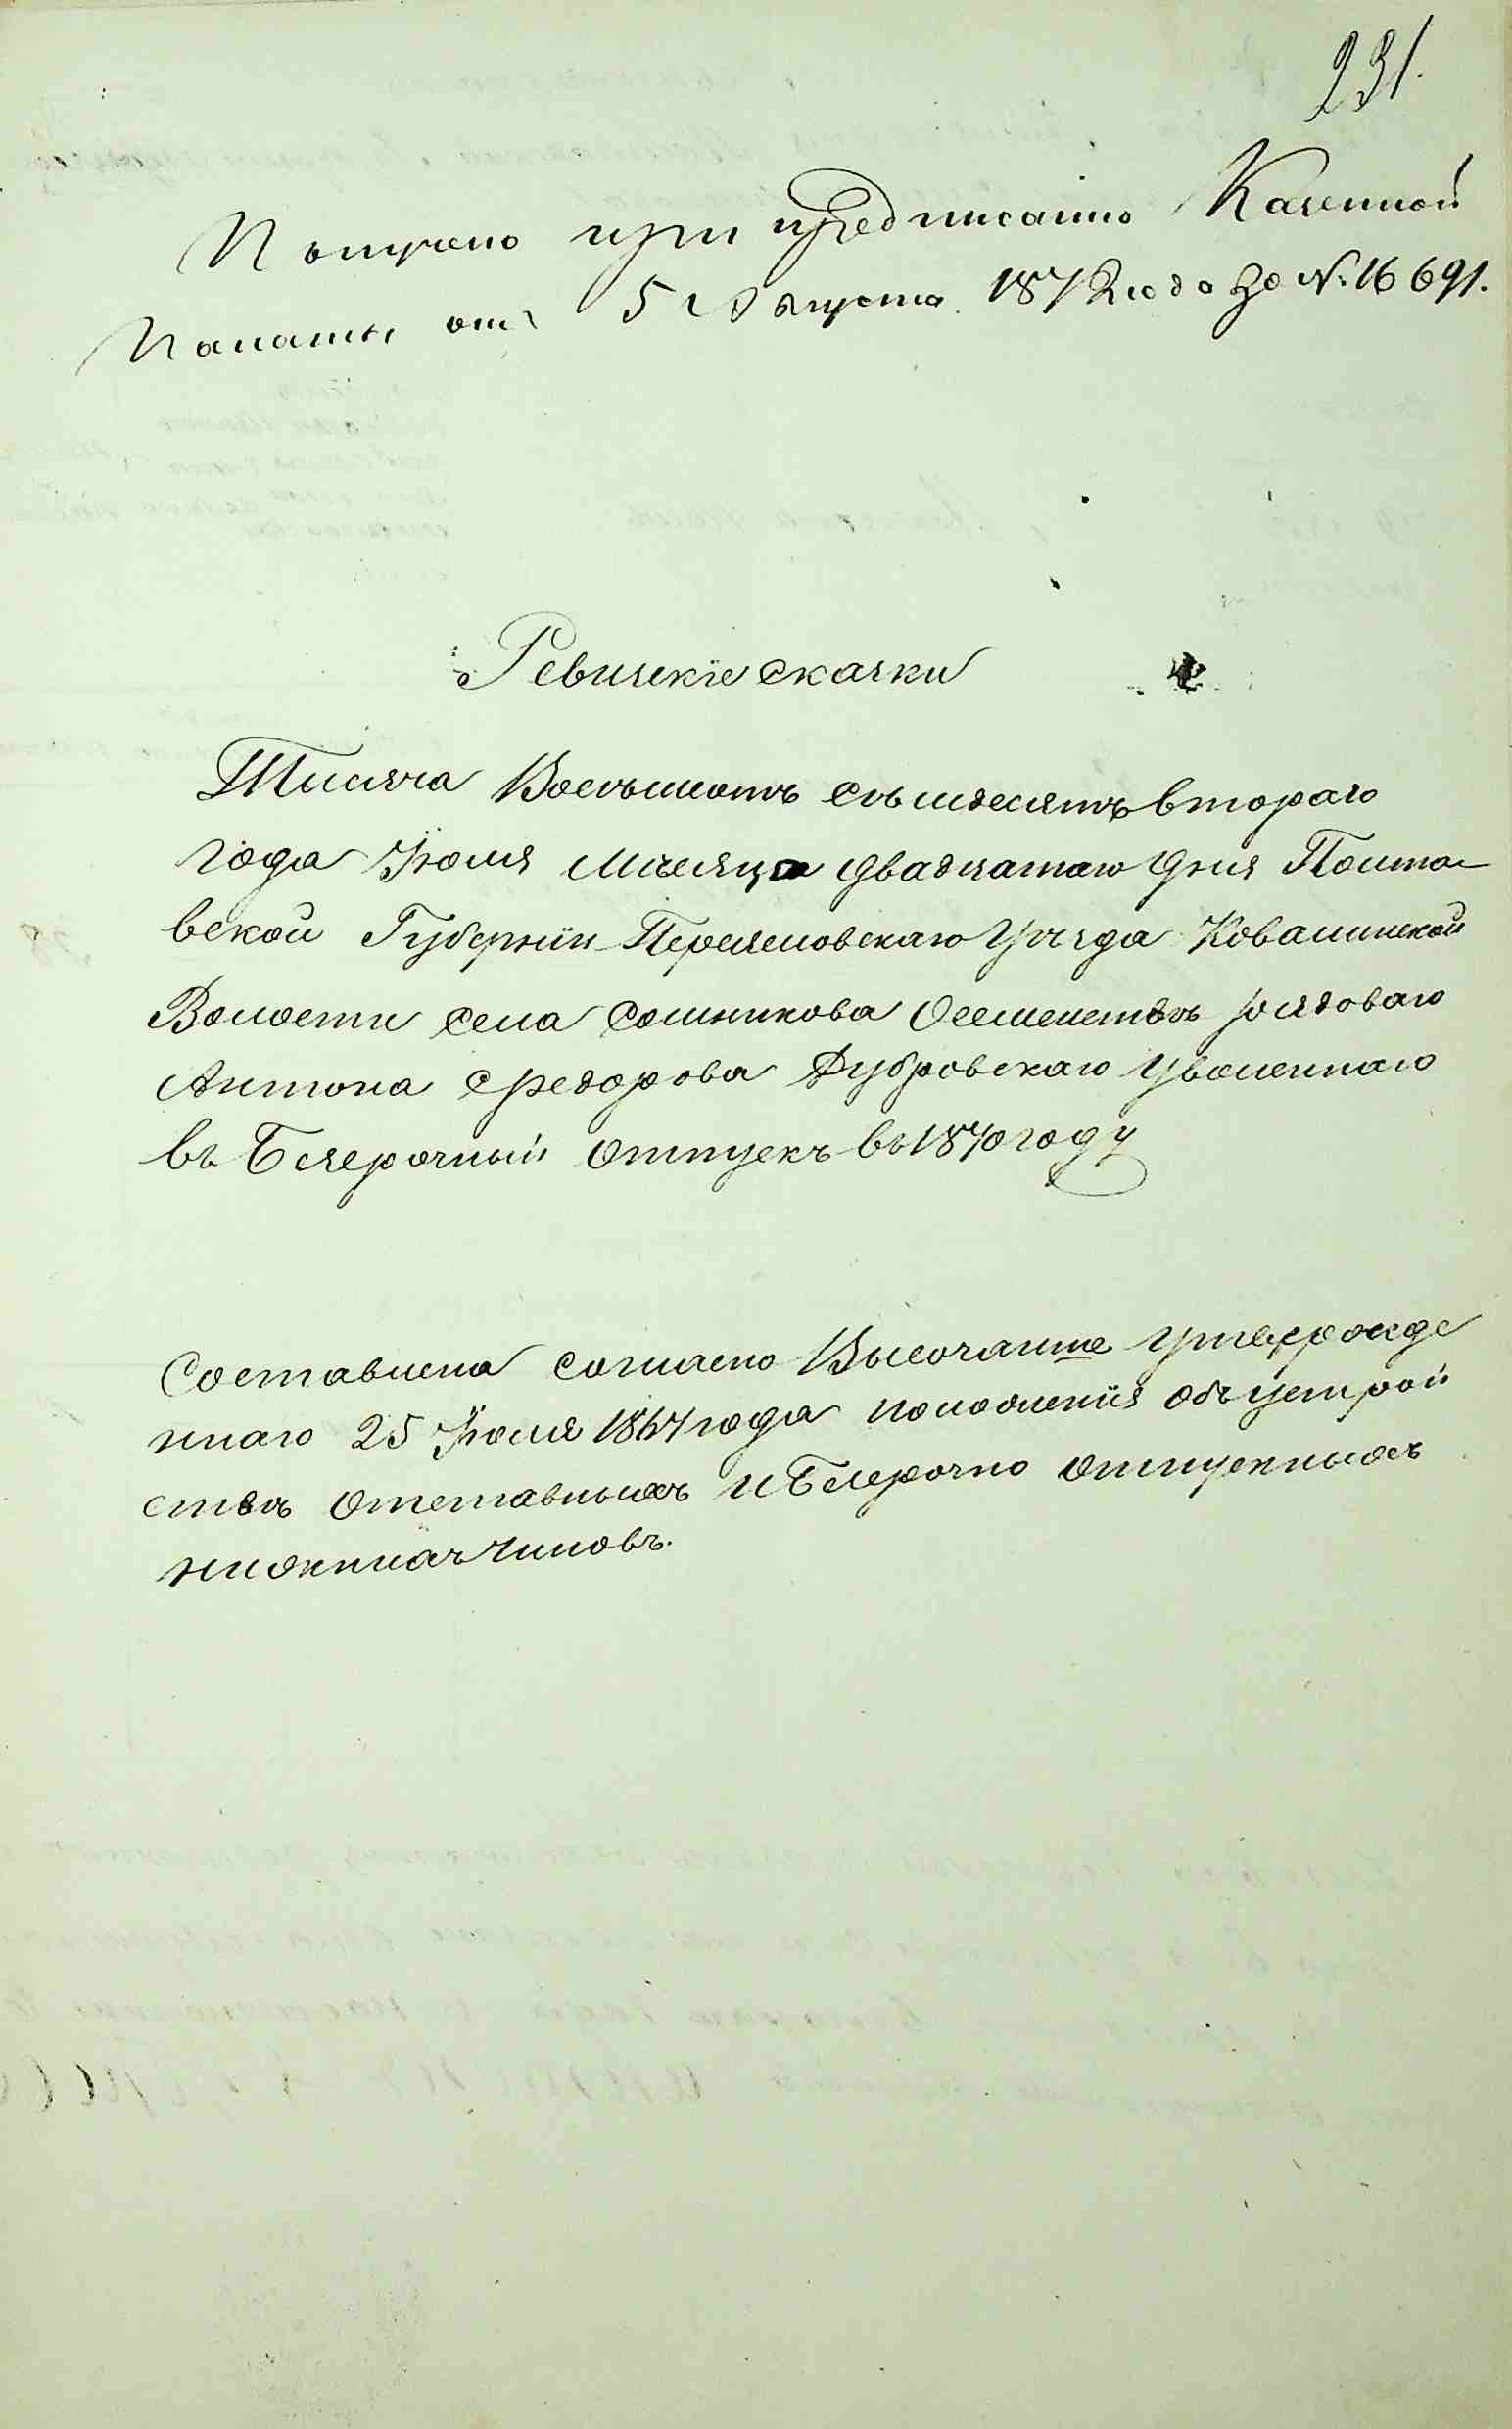 231.
Получено при предписанiю Казенной
Палаты отъ 5 Августа 1872 года за №. 16691.
Ревизскiе сказки
Тисяча Восѣмьсотъ сѣмдесятъ втораго
года Iюля Мѣсяца двадцатаго дня Полта-
вской Губернiи Переяславскаго Уѣзда Ковалинской
Волости села Сошникова О семействѣ рядоваго
Антона Федорова Дубровскаго Уволеннаго
въ Безсрочный отпускъ въ 1870 году
Составлена согласно Высочайше Утвержде
ннаго 25 Iюля 1867 года положенiя объ устрой
ствѣ отставныхъ и Безсрочно отпускныхъ
нижнихъ чиновъ.